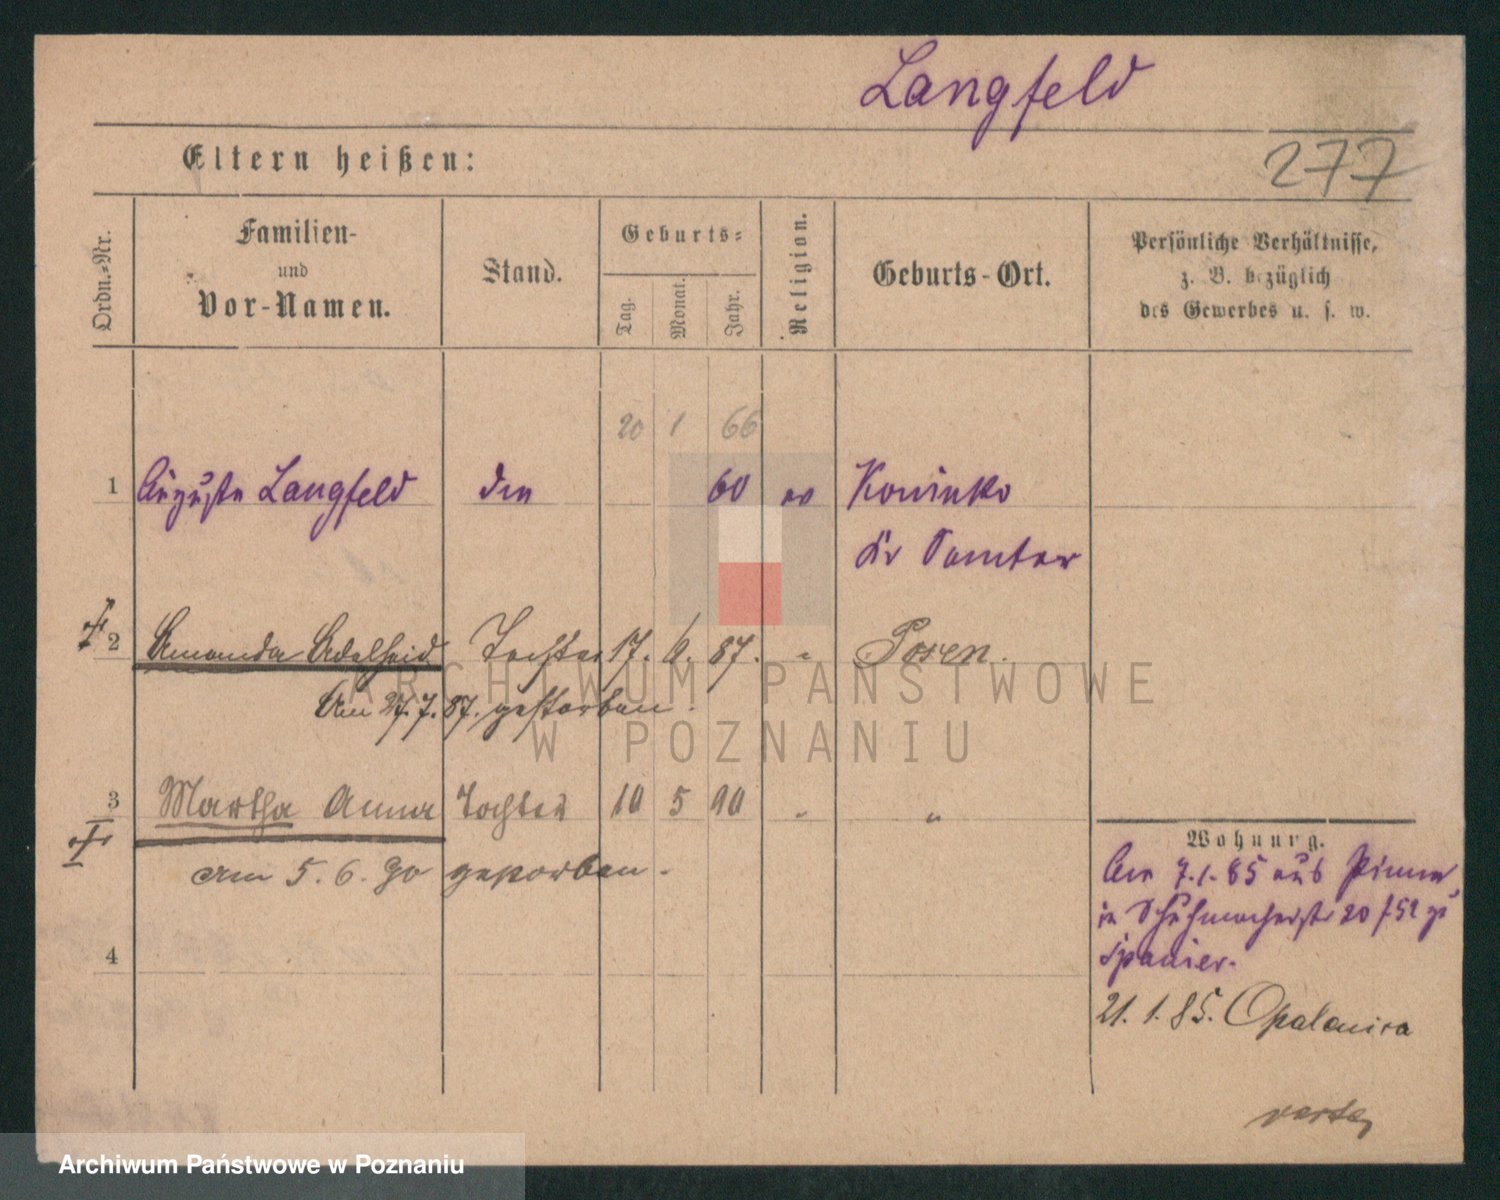 Langfeld
Eltern heißen:
277
Ordn.-Nr.
Familien-
und
Vor-Namen.
Stand.
Geburts-
Tag.
Monat.
Jahr.
Religion.
Geburts-Ort.
Persönliche Verhältnisse,
z. B. bezüglich
des Gewerbes u. s. w.
20 1 66
1 Auguste Langfeld 60 ev
Kr Samter
2 Amanda Adelheid Tochter 17. 6. 87. " Posen.
Am 27.7.87. gestorben.
3 Martha Anna Tochter 10 5 90 " "
am 5.6.90 gestorben.
4
Wohnung.
Am 7.1.85 aus Pinne,
in Schuhmacherstr 20
Spanier.
21.1.85. Opalenica
ARCHIWUM PAŃSTWOWE
W POZNANIU
Archiwum Państwowe w Poznaniu